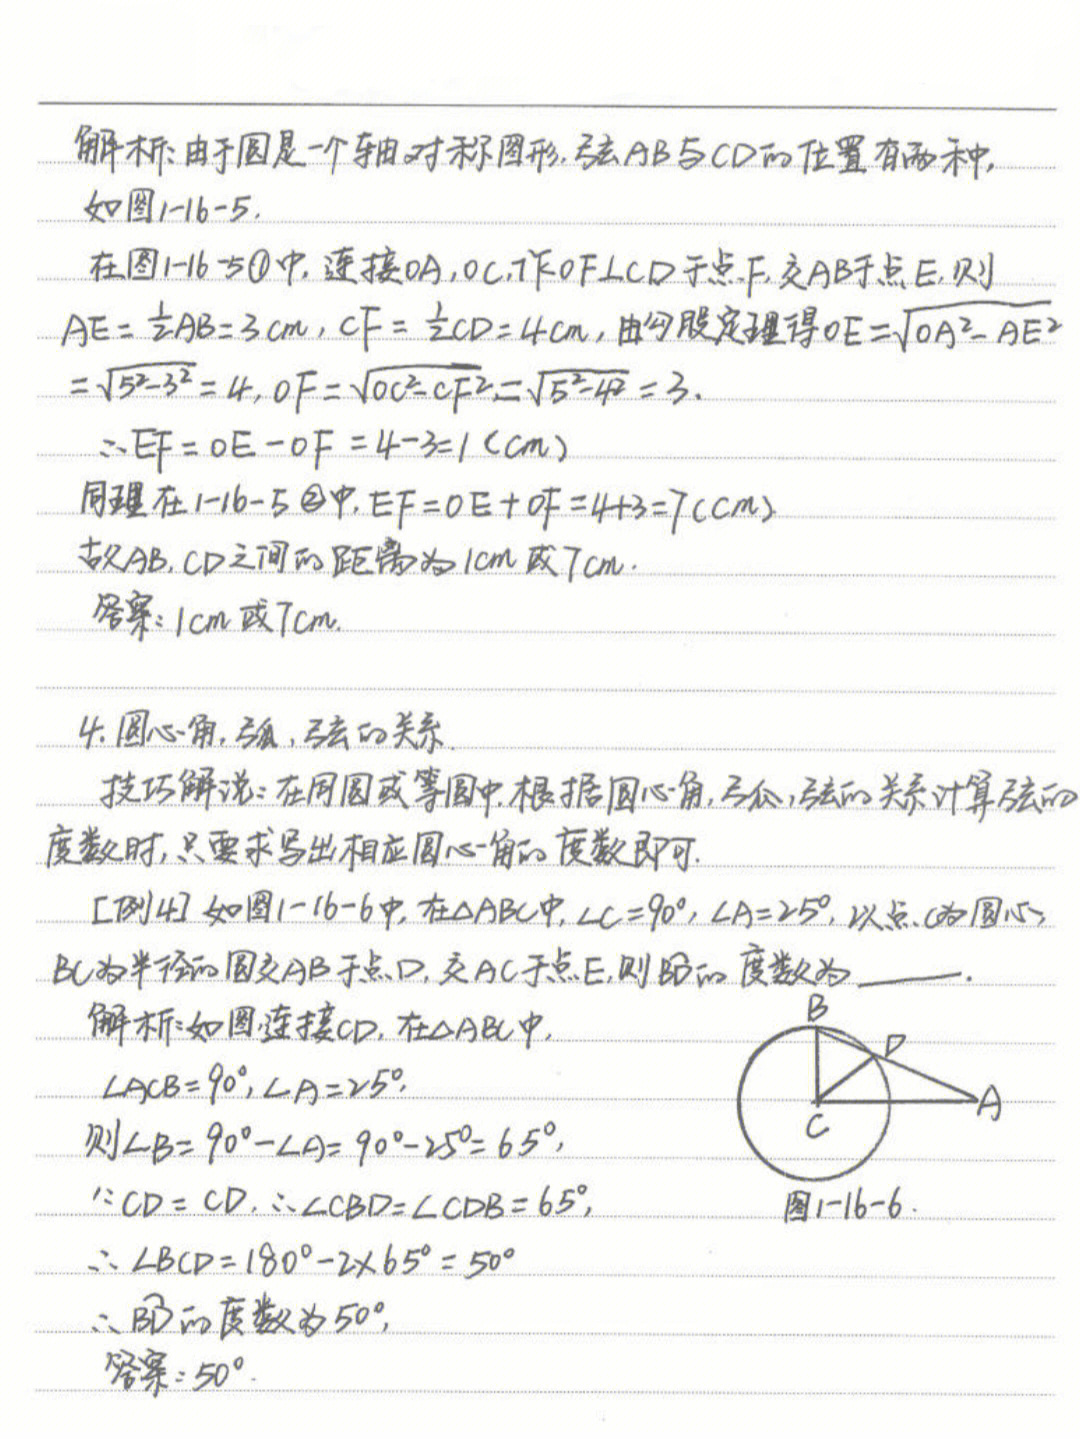 解析:由于圆是一个轴对称图形,弦AB与CD的位置有两种,
如图1-16-5.
在图1-16-5①中,连接OA,OC,作OF⊥CD于点F,交AB于点E,则
AE=½AB=3cm,CF=½CD=4cm,由勾股定理得OE=√(OA²-AE²)
=√(5²-3²)=4,OF=√(OC²-CF²)=√(5²-4²)=3.
∴EF=OE-OF=4-3=1(cm)
同理在1-16-5②中,EF=OE+OF=4+3=7(cm)
故AB,CD之间的距离为1cm或7cm.
答案:1cm或7cm.
4.圆心角,弧,弦的关系.
技巧解说:在同圆或等圆中,根据圆心角,弧,弦的关系计算弦的
度数时,只要求写出相应圆心角的度数即可.
[例4]如图1-16-6中,在△ABC中,∠C=90°,∠A=25°,以点C为圆心,
BC为半径的圆交AB于点D,交AC于点E,则BD的度数为____.
解析:如图,连接CD,在△ABC中,
∠ACB=90°,∠A=25°,
则∠B=90°-∠A=90°-25°=65°,
∵CD=CD,∴∠CBD=∠CDB=65°,
∴∠BCD=180°-2×65°=50°
∴BD的度数为50°,
答案:50°.
B
D
A
C
图1-16-6.